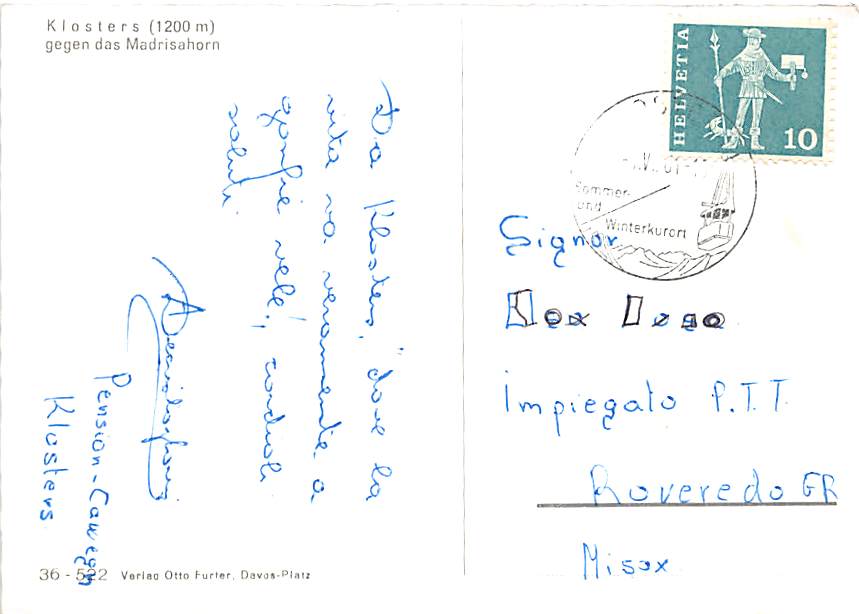 Klosters (1200 m)
gegen das Madrisahorn
HELVETIA
10
Sommer-
und
Winterkurort
Da Klosters, "dove la
vita va veramente a
gonfie vele!, cordiali
saluti
Pension-Cawegn
Klosters
Signor
Impiegato P.T.T.
Roveredo GR
Misox
36 - 522 Verlag Otto Furter, Davos-Platz